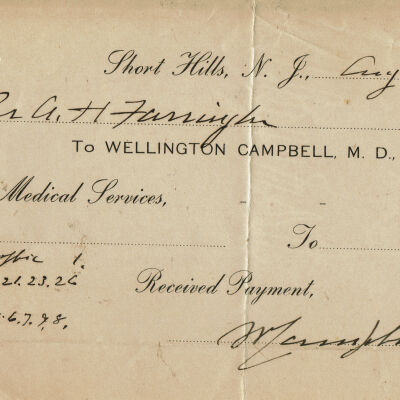 Short Hills, N. J., Aug
A. H. Farrington
To WELLINGTON CAMPBELL, M. D.,
Medical Services,
To
1.
21.23.26
Received Payment,
6.7.9.8.
W Campbell